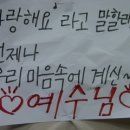 사랑해요' 라고 말할래
언제나
우리 마음속에 계신~
♡예수님♡